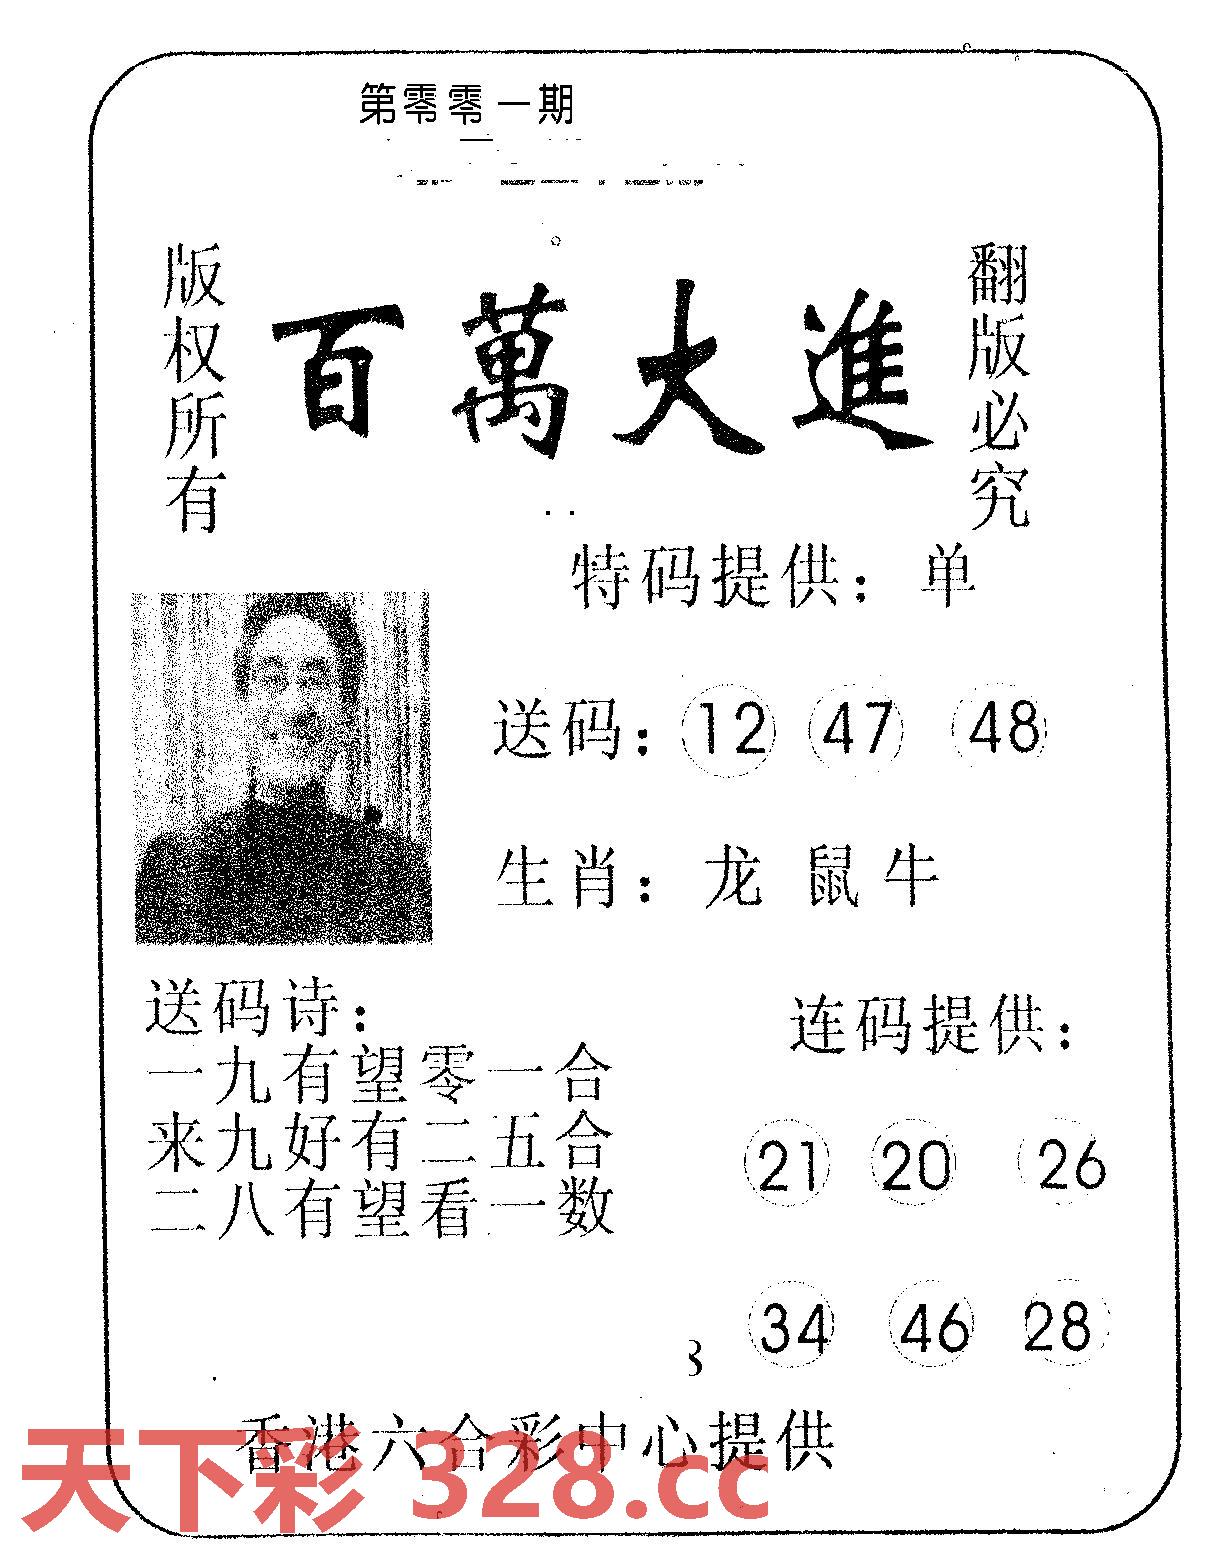 第零零一期
版权所有
百萬大進
翻版必究
特码提供：单
送码：12 47 48
生肖：龙 鼠 牛
送码诗：
一九有望零一合
来九好有二五合
二八有望看一数
连码提供：
21 20 26
34 46 28
香港六合彩中心提供
天下彩 328.cc